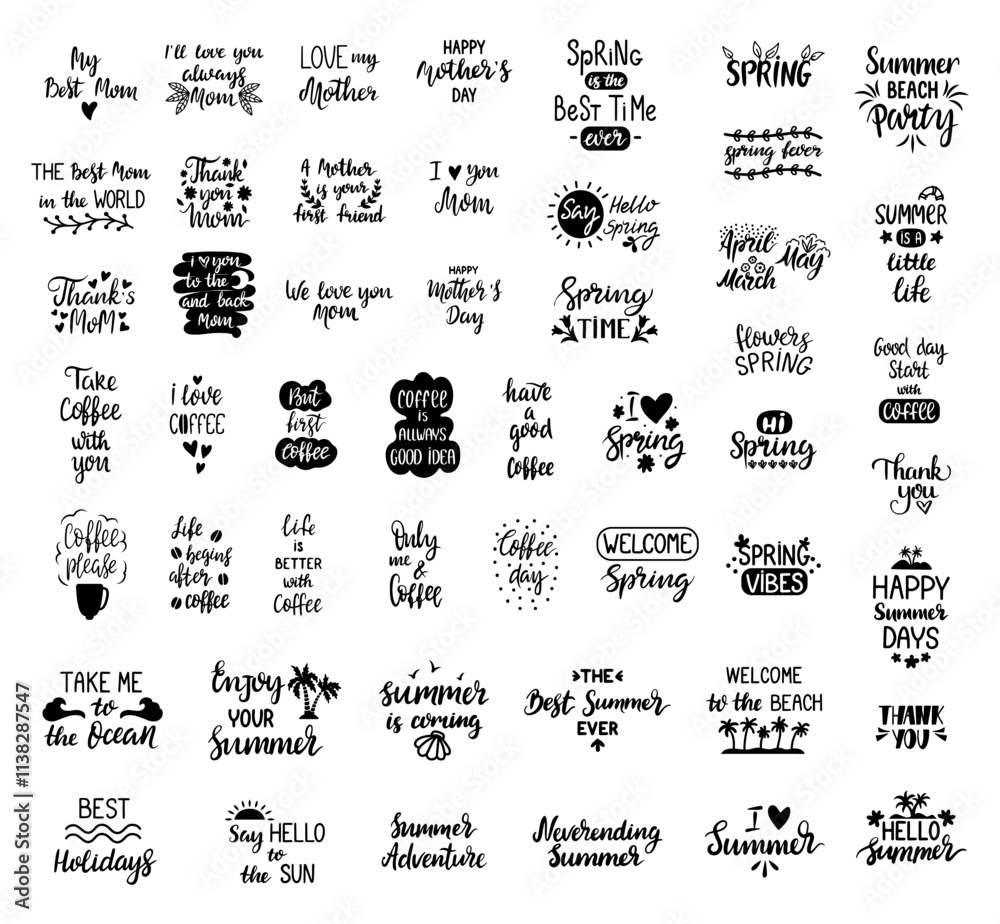 My
Best Mom
I'll love you
always
Mom
LOVE my
Mother
HAPPY
Mother's
DAY
SPRiNG
is the
BEST TiME
ever
SPRING
Summer
BEACH
Party
THE Best Mom
in the WORLD
Thank
you
Mom
A Mother
is your
first friend
I you
Mom
Say Hello
Spring
spring fever
SUMMER
IS A
little
life
Thank's
MoM
i you
to the
and back
Mom
We love you
Mom
HAPPY
Mother's
Day
Spring
TIME
April
May
March
flowers
SPRING
Good day
Start
with
COFFEE
Take
Coffee
with
you
i love
COFFEE
But
first
Coffee
COFFEE
IS
ALLWAYS
GOOD IDEA
have
a
good
Coffee
I
Spring
Hi
Spring
Thank
you
Coffee
please
Life
begins
after
coffee
life
IS
BETTER
with
Coffee
Only
me &
Coffee
Coffee
day
WELCOME
Spring
SPRING
VIBES
HAPPY
Summer
DAYS
TAKE ME
to
the Ocean
Enjoy
YOUR
Summer
summer
is coming
THE
Best Summer
EVER
WELCOME
to the BEACH
THANK
YOU
BEST
Holidays
Say HELLO
to
the SUN
Summer
Adventure
Neverending
Summer
I
Summer
HELLO
Summer
Adobe Stock | #1138287547